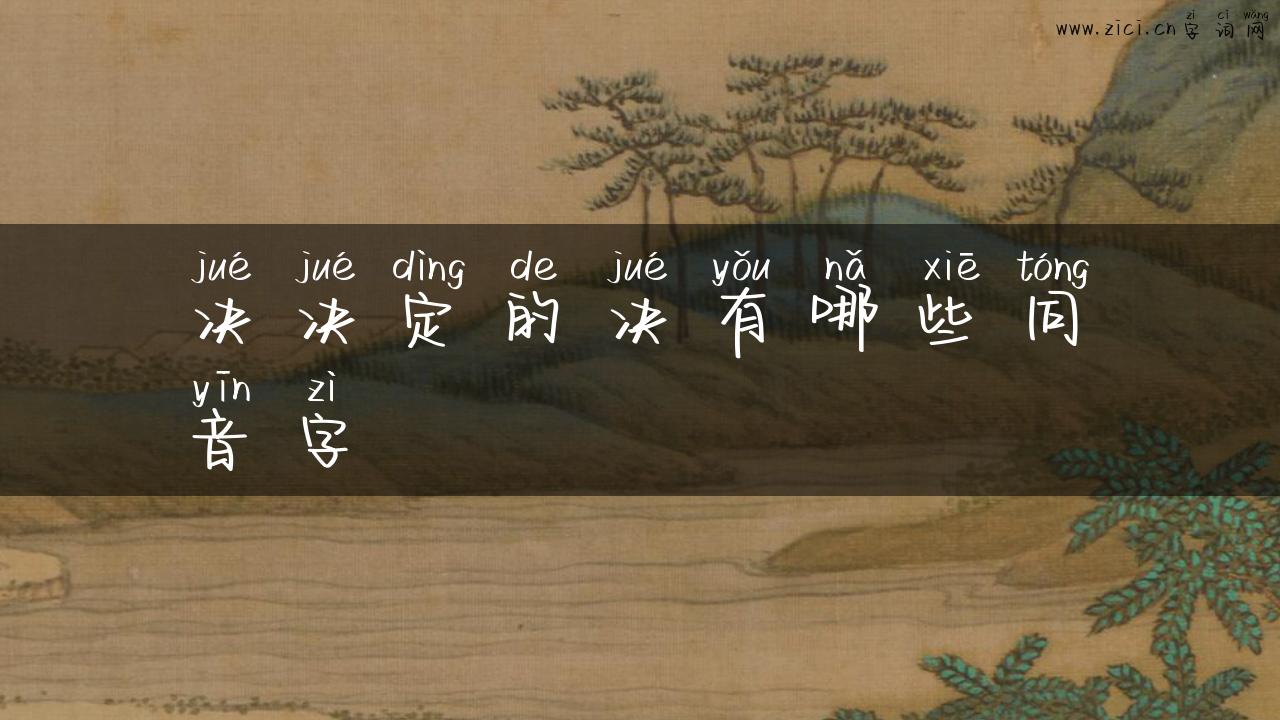 www.zici.cn zì cí wǎng
字词网
jué jué dìng de jué yǒu nǎ xiē tóng
决决定的决有哪些同
yīn zì
音字